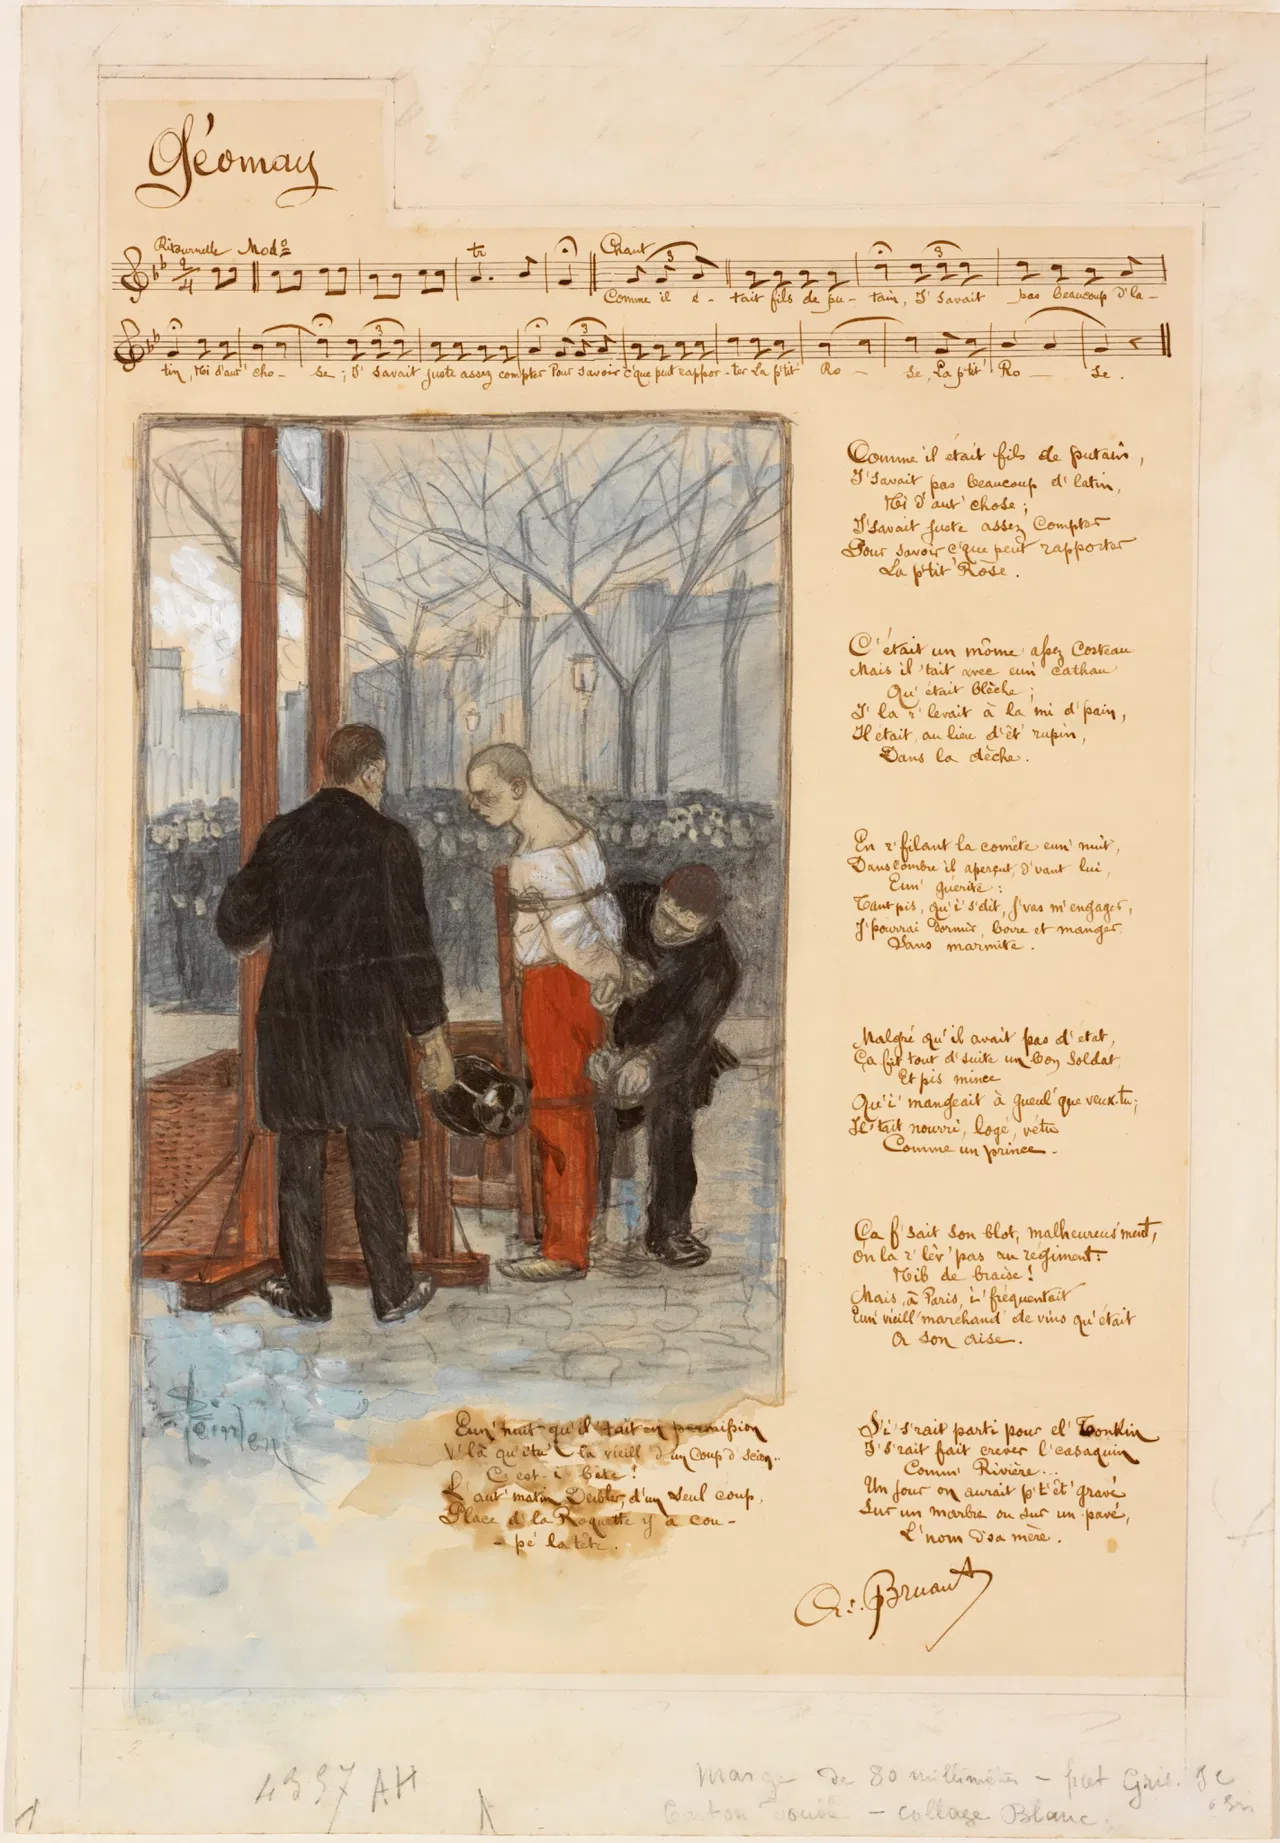 Géomay
Ritournelle Modº
tr
Chant
3
3
Comme il é - tait fils de pu - tain, I' savait pas beaucoup d'la -
3
3
tin, Ni d'aut' cho - se ; I' savait juste assez compter Pour savoir c'que peut rappor - ter La p'tit' Ro - se, La p'tit' Ro - se.
Comme il était fils de putain,
I' savait pas beaucoup d'latin,
Ni d'aut' chose ;
I' savait juste assez compter
Pour savoir c'que peut rapporter
La p'tit' Rose.
C'était un môme assez costeau
Mais il 'tait avec eun' cathau
Qu'était blèche ;
I' la r'levait à la mi d'pain,
Il était, au lieu d'êt' rupin,
Dans la dèche.
En r'filant la comète eun' nuit,
Dans l'ombre il aperçut, d'vant lui,
Eun' guérite :
Tant pis, qu'i' s'dit, j'vas m'engager,
J'pourrai dormir, boire et manger
Sans marmite.
Malgré qu'il avait pas d'état,
Ça fit tout d'suite un bon soldat
Et pis mince
Qu'i' mangeait à gueul' que veux-tu ;
Il 'tait nourri, logé, vêtu
Comme un prince.
Ça f'sait son blot, malheureus'ment,
On la r'lèv' pas au régiment :
Nib de braise !
Mais, à Paris, i' fréquentait
Eun' vieill' marchand' de vins qu'était
A son aise.
Eun' nuit qu'il 'tait en permission
V'là qu'i'tu' la vieill' d'un coup d'scion..
C'est-i' bête !
L'aut' matin Deibler, d'un seul coup,
Place d'la Roquette y a cou -
- pé la tête.
S'i' s'rait parti pour el' Tonkin
I' s'rait fait crever l'casaquin
Comm' Rivière...
Un jour on aurait p't'êt' gravé
Sur un marbre ou sur un pavé,
L'nom d'sa mère.
Steinlen
Ar: Bruant
4397 AH
Marge de 80 millimètres - filet Gris.
Carton double - collage Blanc.